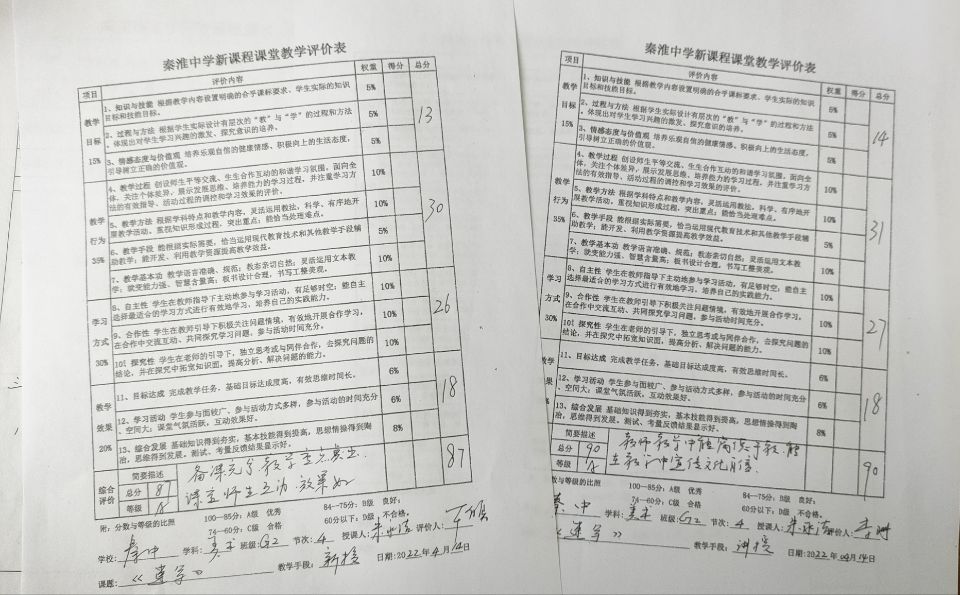 秦淮中学新课程课堂教学评价表
项目 评价内容 权重 得分 总分
教学目标 15%
1、知识与技能 根据教学内容设置明确的合乎课标要求、学生实际的知识目标和技能目标。 5%
2、过程与方法 根据学生实际设计有层次的“教”与“学”的过程和方法，体现出对学生学习兴趣的激发、探究意识的培养。 5%
3、情感态度与价值观 培养乐观自信的健康情感、积极向上的生活态度，引导树立正确的价值观。 5%
13
教学行为 35%
4、教学过程 创设师生平等交流、生生合作互动的和谐学习氛围，面向全体，关注个体差异，展示发展思维、培养能力的学习过程，并注重学习方法的有效指导、活动过程的调控和学习效果的评价。 10%
5、教学方法 根据学科特点和教学内容，灵活运用教法，科学、有序地开展教学活动。重视知识形成过程，突出重点；能恰当处理难点。 10%
6、教学手段 能根据实际需要，恰当运用现代教育技术和其他教学手段辅助教学；能开发、利用教学资源提高教学效益。 5%
7、教学基本功 教学语言准确、规范；教态亲切自然；灵活运用文本教学；应变能力强、智慧含量高；板书设计合理，书写工整美观。 10%
30
学习方式 30%
8、自主性 学生在教师指导下主动地参与学习活动，有足够时空；能自主选择最适合的学习方式进行有效地学习，培养自己的实践能力。 10%
9、合作性 学生在教师引导下积极关注问题情境，有效地开展合作学习，在合作中交流互动、共同探究学习问题，参与活动时间充分。 10%
10、探究性 学生在老师的引导下，独立思考或与同伴合作，去探究问题的结论，并在探究中拓宽知识面，提高分析、解决问题的能力。 10%
26
教学效果 20%
11、目标达成 完成教学任务，基础目标达成度高，有效思维时间长。 6%
12、学习活动 学生参与面较广、参与活动方式多样，参与活动的时间充分、空间大；课堂气氛活跃，互动效果好。 6%
13、综合发展 基础知识得到夯实，基本技能得到提高，思想情操得到陶冶，思维得到发展。测试、考量反馈结果显示好。 8%
18
综合评价 简要描述
总分 87
等级 A
备课充分 教学重点突出
课堂师生互动 效果好
87
附：分数与等级的比照 100—85分：A级 优秀 84—75分：B级 良好；
74—60分：C级 合格 60分以下：D级 不合格。
学校：秦中 学科：美术 班级：G2 节次：4 授课人：朱 评价人：
课题：《 》 教学手段：新授 日期：2022年4月14日
秦淮中学新课程课堂教学评价表
项目 评价内容 权重 得分 总分
教学目标 15%
1、知识与技能 根据教学内容设置明确的合乎课标要求、学生实际的知识目标和技能目标。 5%
2、过程与方法 根据学生实际设计有层次的“教”与“学”的过程和方法，体现出对学生学习兴趣的激发、探究意识的培养。 5%
3、情感态度与价值观 培养乐观自信的健康情感、积极向上的生活态度，引导树立正确的价值观。 5%
14
教学行为 35%
4、教学过程 创设师生平等交流、生生合作互动的和谐学习氛围，面向全体，关注个体差异，展示发展思维、培养能力的学习过程，并注重学习方法的有效指导、活动过程的调控和学习效果的评价。 10%
5、教学方法 根据学科特点和教学内容，灵活运用教法，科学、有序地开展教学活动。重视知识形成过程，突出重点；能恰当处理难点。 10%
6、教学手段 能根据实际需要，恰当运用现代教育技术和其他教学手段辅助教学；能开发、利用教学资源提高教学效益。 5%
7、教学基本功 教学语言准确、规范；教态亲切自然；灵活运用文本教学；应变能力强、智慧含量高；板书设计合理，书写工整美观。 10%
31
学习方式 30%
8、自主性 学生在教师指导下主动地参与学习活动，有足够时空；能自主选择最适合的学习方式进行有效地学习，培养自己的实践能力。 10%
9、合作性 学生在教师引导下积极关注问题情境，有效地开展合作学习，在合作中交流互动、共同探究学习问题，参与活动时间充分。 10%
10、探究性 学生在老师的引导下，独立思考或与同伴合作，去探究问题的结论，并在探究中拓宽知识面，提高分析、解决问题的能力。 10%
27
教学效果 20%
11、目标达成 完成教学任务，基础目标达成度高，有效思维时间长。 6%
12、学习活动 学生参与面较广、参与活动方式多样，参与活动的时间充分、空间大；课堂气氛活跃，互动效果好。 6%
13、综合发展 基础知识得到夯实，基本技能得到提高，思想情操得到陶冶，思维得到发展。测试、考量反馈结果显示好。 8%
18
简要描述
总分 90
等级 A
教师教学中能寓德于教，能
在教 中宣传文化自信。
90
数与等级的比照 100—85分：A级 优秀 84—75分：B级 良好；
74—60分：C级 合格 60分以下：D级 不合格。
秦中 学科：美术 班级：G2 节次：4 授课人：朱 评价人：李
《 》 教学手段：讲授 日期：2022年04月14日